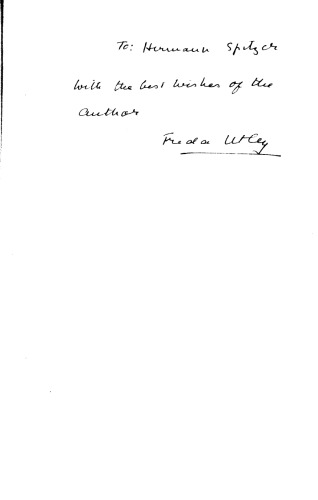 To: Hermann Spitzer
with the best wishes of the
author
Freda Utley